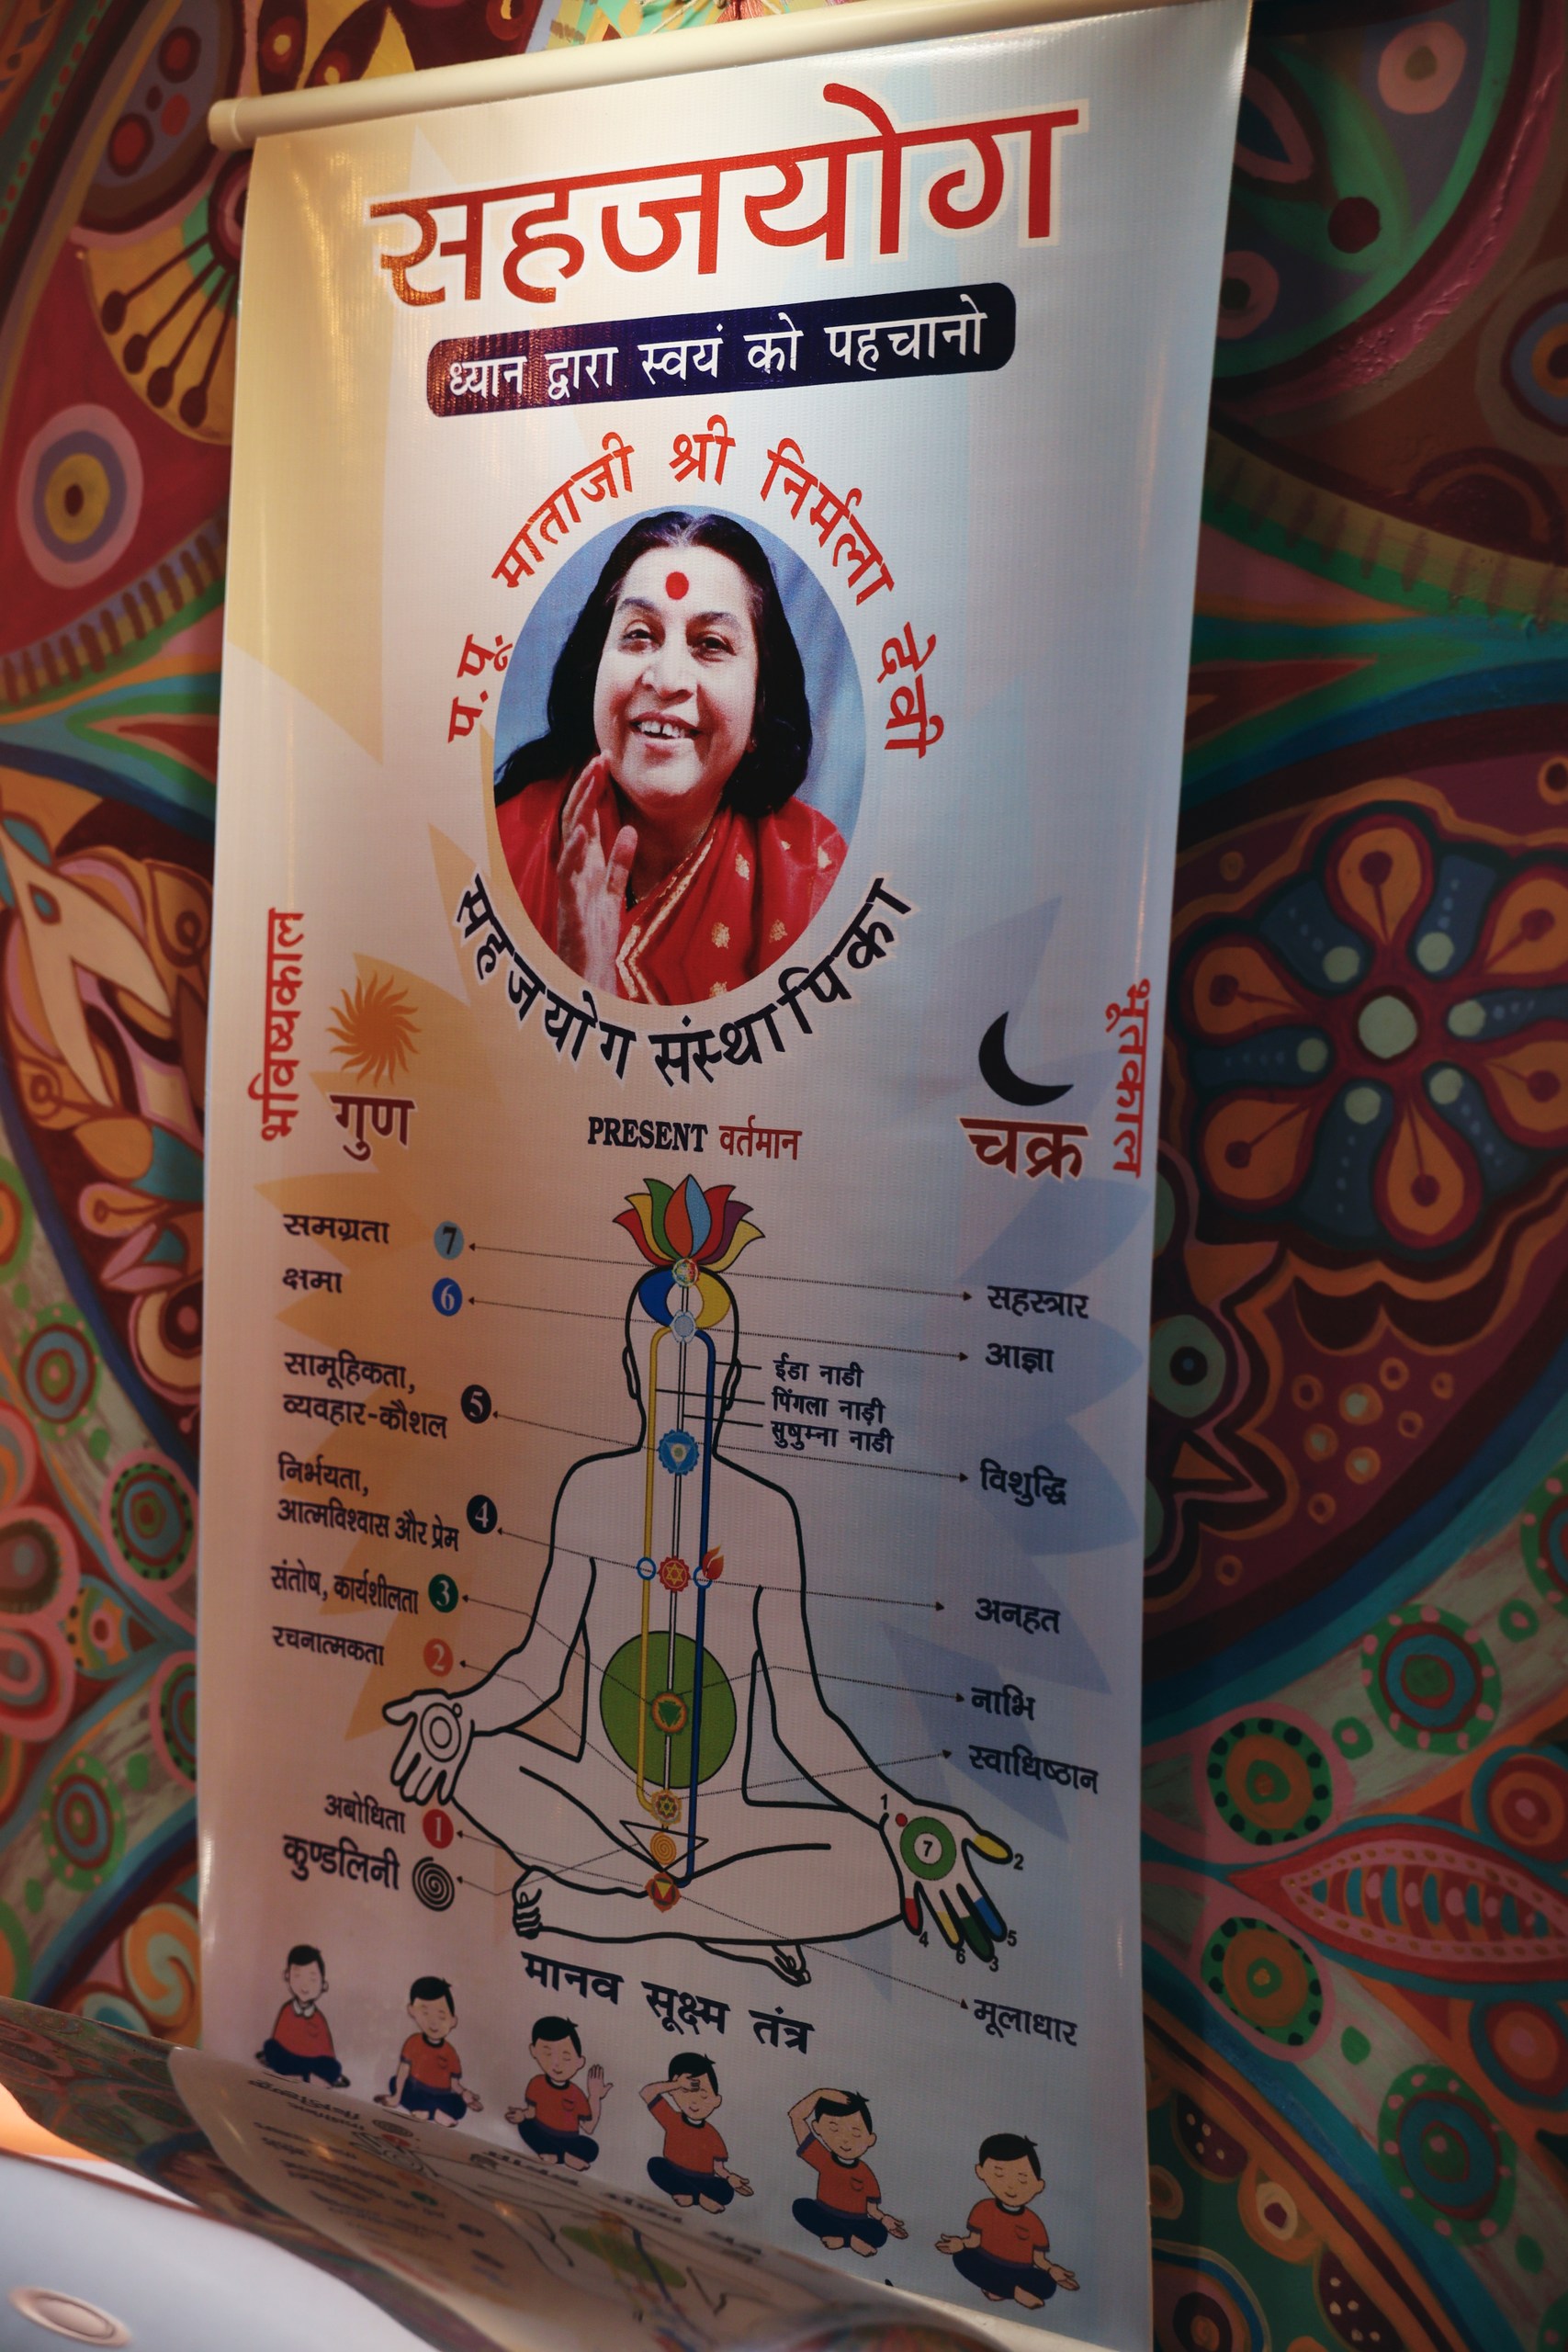 सहजयोग
ध्यान द्वारा स्वयं को पहचानो
प.पू. माताजी श्री निर्मला देवी
सहजयोग संस्थापिका
भविष्यकाल
गुण
PRESENT वर्तमान
चक्र
भूतकाल
समग्रता 7
सहस्त्रार
क्षमा 6
आज्ञा
ईडा नाडी
पिंगला नाड़ी
सुषुम्ना नाडी
सामूहिकता,
व्यवहार-कौशल 5
विशुद्धि
निर्भयता,
आत्मविश्वास और प्रेम 4
अनहत
संतोष, कार्यशीलता 3
नाभि
रचनात्मकता 2
स्वाधिष्ठान
अबोधिता 1
कुण्डलिनी
1
7
2
4
6
3
5
मूलाधार
मानव सूक्ष्म तंत्र